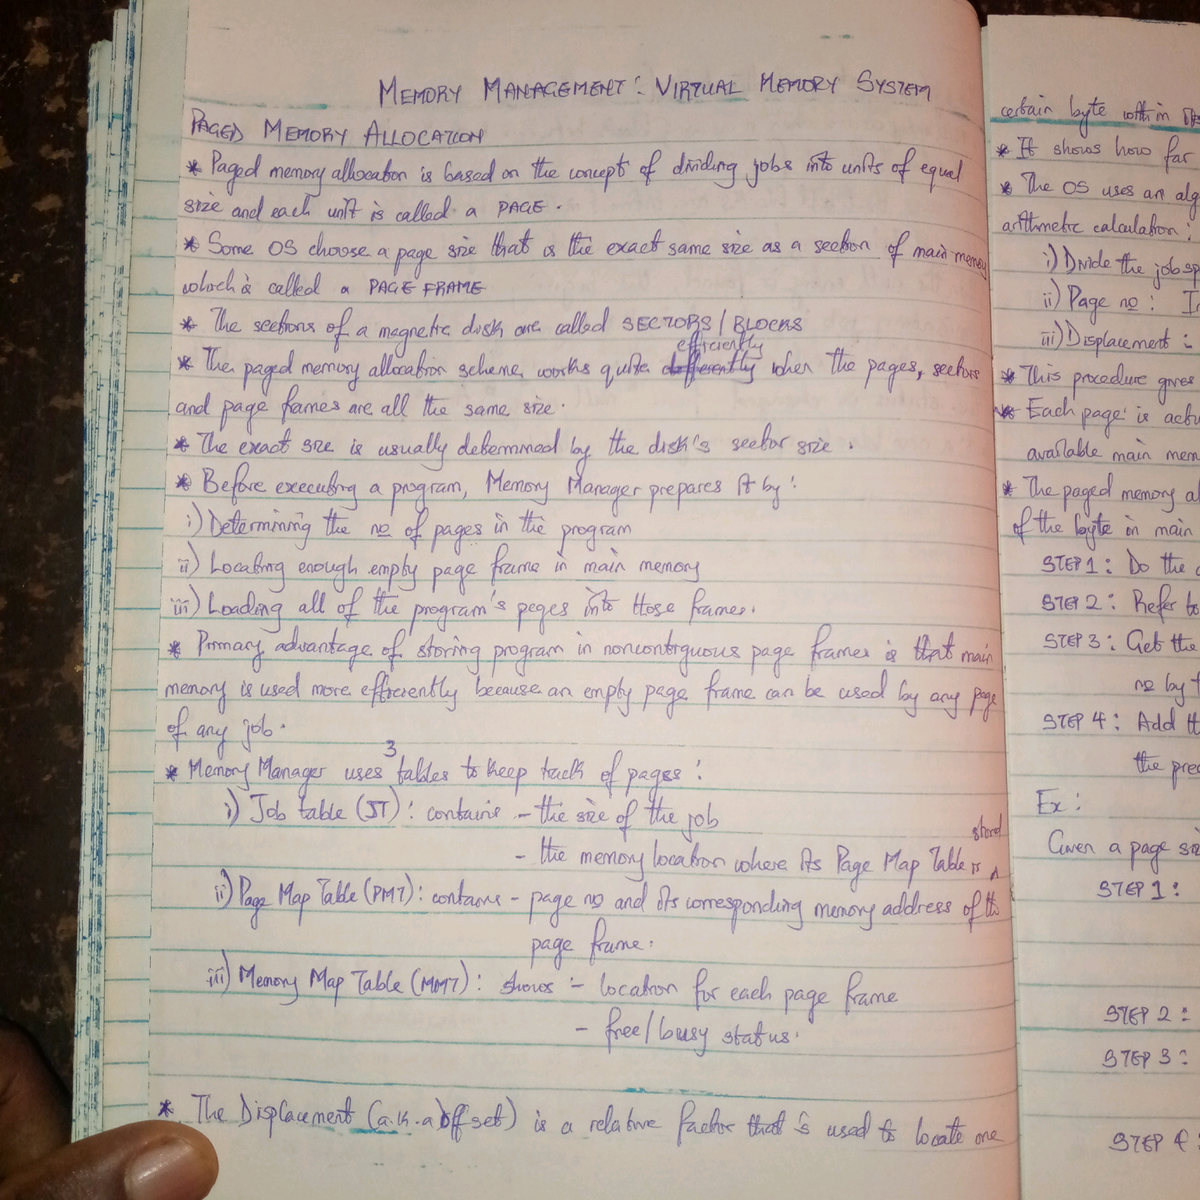 MEMORY MANAGEMENT: VIRTUAL MEMORY SYSTEM
PAGED MEMORY ALLOCATION
* Paged memory allocation is based on the concept of dividing jobs into units of equal
size and each unit is called a PAGE.
* Some OS choose a page size that is the exact same size as a section of main memory
which is called a PAGE FRAME
* The sections of a magnetic disk are called SECTORS/BLOCKS
efficiently
* The paged memory allocation scheme works quite when the pages, sectors
and page frames are all the same size.
* The exact size is usually determined by the disk's sector size.
* Before executing a program, Memory Manager prepares it by:
i) Determining the no of pages in the program
ii) Locating enough empty page frame in main memory
iii) Loading all of the program's pages into those frames.
* Primary advantage of storing program in noncontiguous page frames is that main
memory is used more efficiently because an empty page frame can be used by any page
of any job.
3
* Memory Manager uses tables to keep track of pages:
i) Job table (JT): contains - the size of the job
stored
- the memory location where its Page Map Table is ^
ii) Page Map Table (PMT): contains - page no and its corresponding memory address of the
page frame.
iii) Memory Map Table (MMT): shows :- location for each page frame
- free/busy status.
* The Displacement (a.k.a offset) is a relative factor that is used to locate one
certain byte within
* It shows how far
* The OS uses an alg
arithmetic calculation:
i) Divide the job sp
ii) Page no: I
iii) Displacement:
* This procedure gives
* Each page is actu
available main mem
* The paged memory al
of the byte in main
STEP 1: Do the
STEP 2: Refer to
STEP 3: Get the
no by t
STEP 4: Add th
the prec
Ex:
Given a page siz
STEP 1:
STEP 2:
STEP 3:
STEP 4: